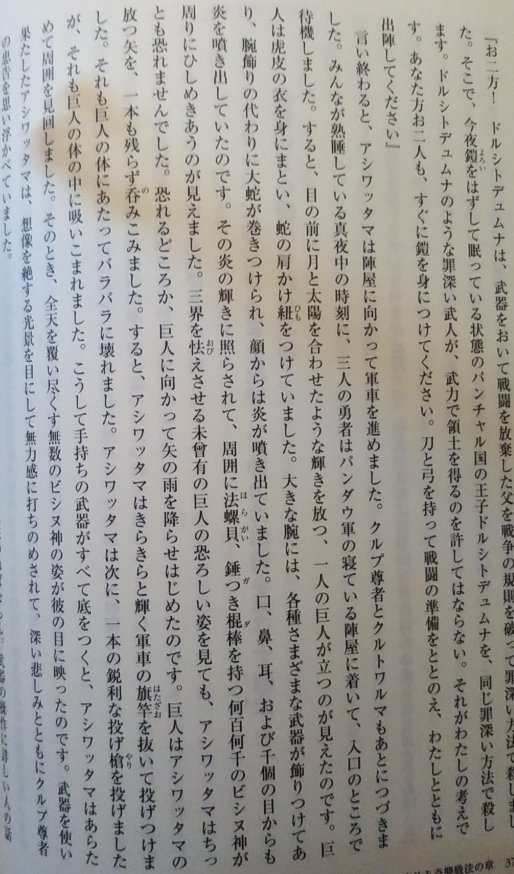 『お二方！　ドルシトデュムナは、武器をおいて戦闘を放棄した父を戦争の規則を破って罪深い方法で殺しまし
た。そこで、今夜鎧をはずして眠っている状態のパンチャル国の王子ドルシトデュムナを、同じ罪深い方法で殺し
ます。ドルシトデュムナのような罪深い武人が、武力で領土を得るのを許してはならない。それがわたしの考えで
す。あなた方お二人も、すぐに鎧を身につけてください。刀と弓を持って戦闘の準備をととのえ、わたしとともに
出陣してください』
言い終わると、アシワッタマは陣屋に向かって軍車を進めました。クルプ尊者とクルトワルマもあとにつづきま
した。みんなが熟睡している真夜中の時刻に、三人の勇者はパンダウ軍の寝ている陣屋に着いて、入口のところで
待機しました。すると、目の前に月と太陽を合わせたような輝きを放つ、一人の巨人が立つのが見えたのです。巨
人は虎皮の衣を身にまとい、蛇の肩かけ紐をつけていました。大きな腕には、各種さまざまな武器が飾りつけてあ
り、腕飾りの代わりに大蛇が巻きつけられ、顔からは炎が噴き出ていました。口、鼻、耳、および千個の目からも
炎を噴き出していたのです。その炎の輝きに照らされて、周囲に法螺貝、錘つき棍棒を持つ何百何千のビシヌ神が
周りにひしめきあうのが見えました。三界を怯えさせる未曾有の巨人の恐ろしい姿を見ても、アシワッタマはちっ
とも恐れませんでした。恐れるどころか、巨人に向かって矢の雨を降らせはじめたのです。巨人はアシワッタマの
放つ矢を、一本も残らず呑みこみました。すると、アシワッタマはきらきらと輝く軍車の旗竿を抜いて投げつけま
した。それも巨人の体にあたってバラバラに壊れました。アシワッタマは次に、一本の鋭利な投げ槍を投げました
が、それも巨人の体の中に吸いこまれました。こうして手持ちの武器がすべて底をつくと、アシワッタマはあらた
めて周囲を見回しました。そのとき、全天を覆い尽くす無数のビシヌ神の姿が彼の目に映ったのです。武器を使い
果たしたアシワッタマは、想像を絶する光景を目にして無力感に打ちのめされて、深い悲しみとともにクルプ尊者
の忠告を思い浮かべていました。